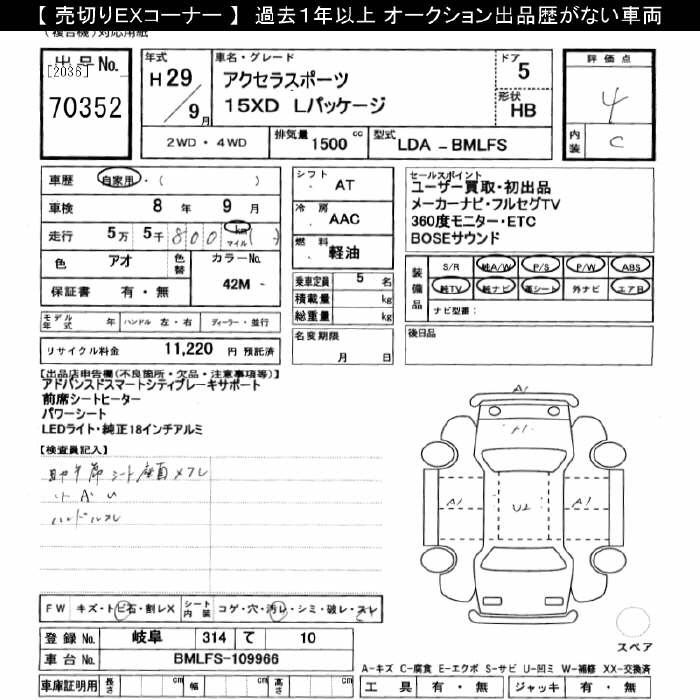 【 売切りEXコーナー 】 過去1年以上 オークション出品歴がない車両
(複合機)対応用紙
出品No.
[2036]
70352
年式
H 29 / 9 月
車名・グレード
アクセラスポーツ
15XD Lパッケージ
ドア
5
形状
HB
2WD・4WD
排気量 1500 cc
型式 LDA - BMLFS
評価点
4
内装 C
車歴 自家用・( )
車検 8 年 9 月
走行 5万 5千 800 km マイル ( )
色 アオ 色替 カラーNo.
42M -
保証書 有・無
モデル年式 年 ハンドル 左・右 ディーラー・並行
リサイクル料金 11,220 円 預託済
シフト AT
冷房 AAC
燃料 軽油
乗車定員 5 名
積載量 kg
総重量 kg
名変期限
月 日
セールスポイント
ユーザー買取・初出品
メーカーナビ・フルセグTV
360度モニター・ETC
BOSEサウンド
装備品
S/R 純A/W P/S P/W ABS
純TV 純ナビ 革シート 外ナビ エアB
ナビ型番:
後日品
【出品店申告欄(不良箇所・欠品・注意事項等)】
アドバンスドスマートシティブレーキサポート
前席シートヒーター
パワーシート
LEDライト・純正18インチアルミ
【検査員記入】
シート座面スレ
小A U
ハンドルスレ
A1
A1
A1
U2
A1
FW キズ・トビ石・割レX シート内装 コゲ・穴・汚レ・シミ・破レ・スレ
登録No. 岐阜 314 て 10
車台No. BMLFS-109966
車庫証明用 長さ cm 幅 cm 高さ cm
スペア
A-キズ C-腐食 E-エクボ S-サビ U-凹ミ W-補修 XX-交換済
工具 有・無 ジャッキ 有・無